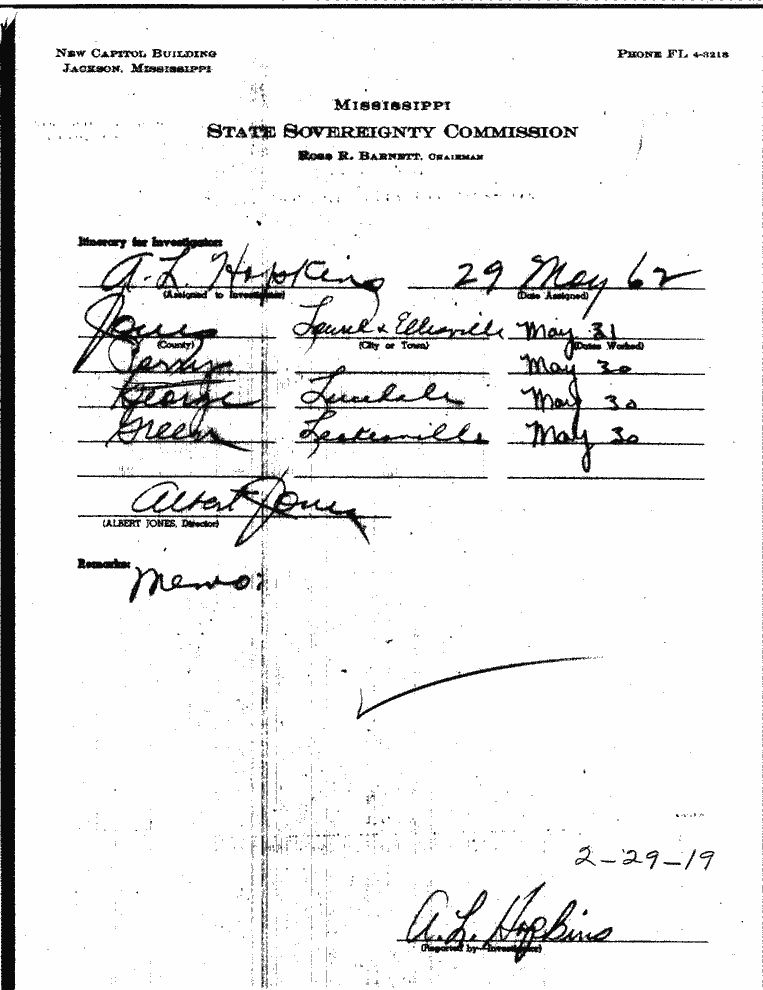 NEW CAPITOL BUILDING PHONE FL 4-3218
JACKSON, MISSISSIPPI
MISSISSIPPI
STATE SOVEREIGNTY COMMISSION
ROSS R. BARNETT, CHAIRMAN
Itinerary for Investigator:
A. L. Hopkins 29 May 62
(Assigned to Investigator) (Date Assigned)
Jones Laurel & Ellisville May 31
(County) (City or Town) (Dates Worked)
Perry May 30
George Lucedale May 30
Green Leakesville May 30
Albert Jones
(ALBERT JONES, Director)
Remarks:
Memo:
2-29-19
A. L. Hopkins
(Reported by—Investigator)